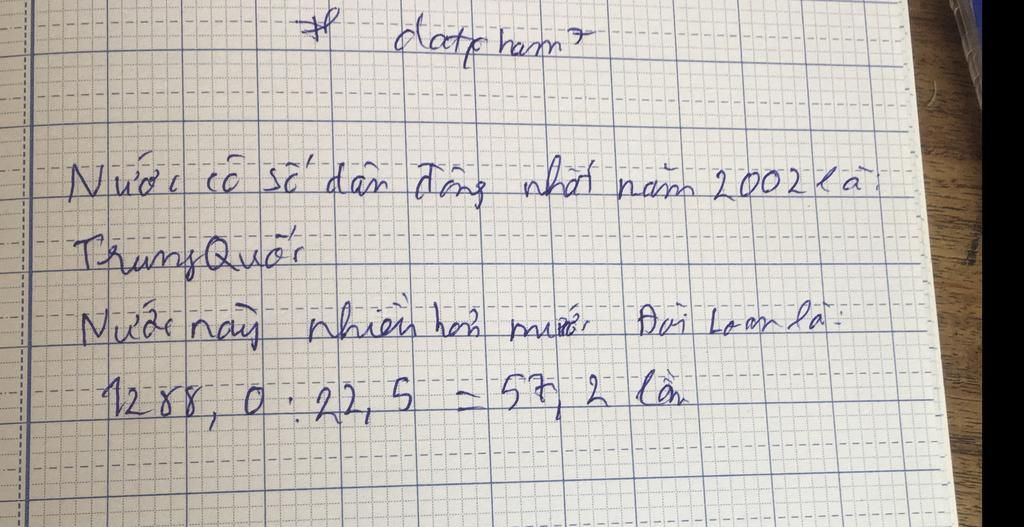 datpham
Nước có số dân đông nhất năm 2002 là:
Trung Quốc
Nước này nhiều hơn nước Đài Loan là:
1288,0 : 22,5 = 57,2 lần